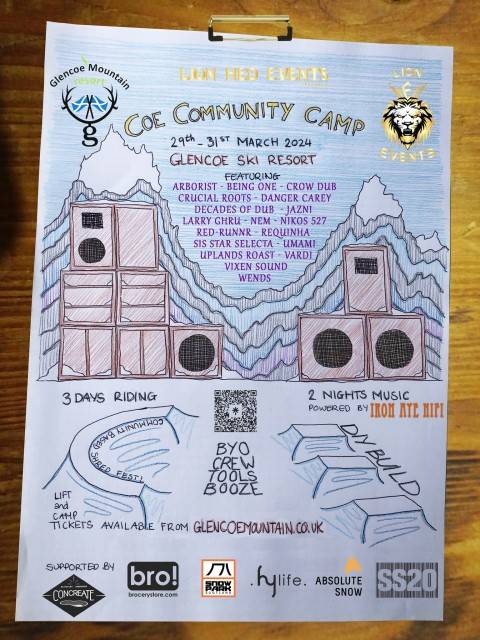 Glencoe Mountain
resort
g
LION HED EVENTS
LION
EVENTS
COE COMMUNITY CAMP
29th - 31ST MARCH 2024
GLENCOE SKI RESORT
FEATURING
ARBORIST - BEING ONE - CROW DUB
CRUCIAL ROOTS - DANGER CAREY
DECADES OF DUB - JAZNI
LARRY GHRU - NEM - NIKOS 527
RED-RUNNR - REQUINHA
SIS STAR SELECTA - UMAMI
UPLANDS ROAST - VARDI
VIXEN SOUND
WENDS
3 DAYS RIDING
2 NIGHTS MUSIC
POWERED BY IRON AYE HIFI
COMMUNITY BASED
SHRED FEST!
BYO
CREW
TOOLS
BOOZE
DIY BUILD
LIFT
and
CAMP
TICKETS AVAILABLE FROM GLENCOEMOUNTAIN.CO.UK
SUPPORTED BY
CONCREATE
bro!
brocerystore.com
SNOW
PARK
.hylife.
ABSOLUTE
SNOW
SS20